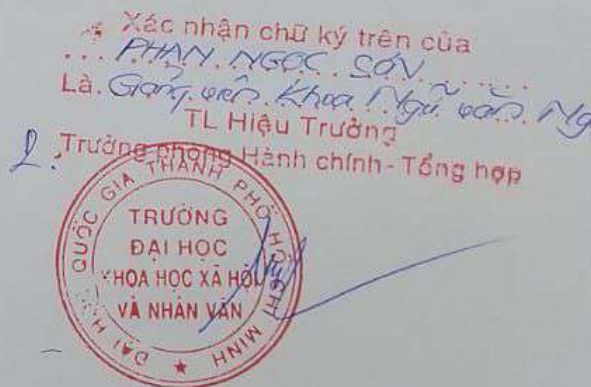 Xác nhận chữ ký trên của
... PHAN NGỌC SƠN ......
Là. Giảng viên Khoa Ngữ văn Ng
TL Hiệu Trưởng
Trưởng phòng Hành chính - Tổng hợp
ĐẠI HỌC QUỐC GIA THÀNH PHỐ HỒ CHÍ MINH
TRƯỜNG
ĐẠI HỌC
KHOA HỌC XÃ HỘI
VÀ NHÂN VĂN
★